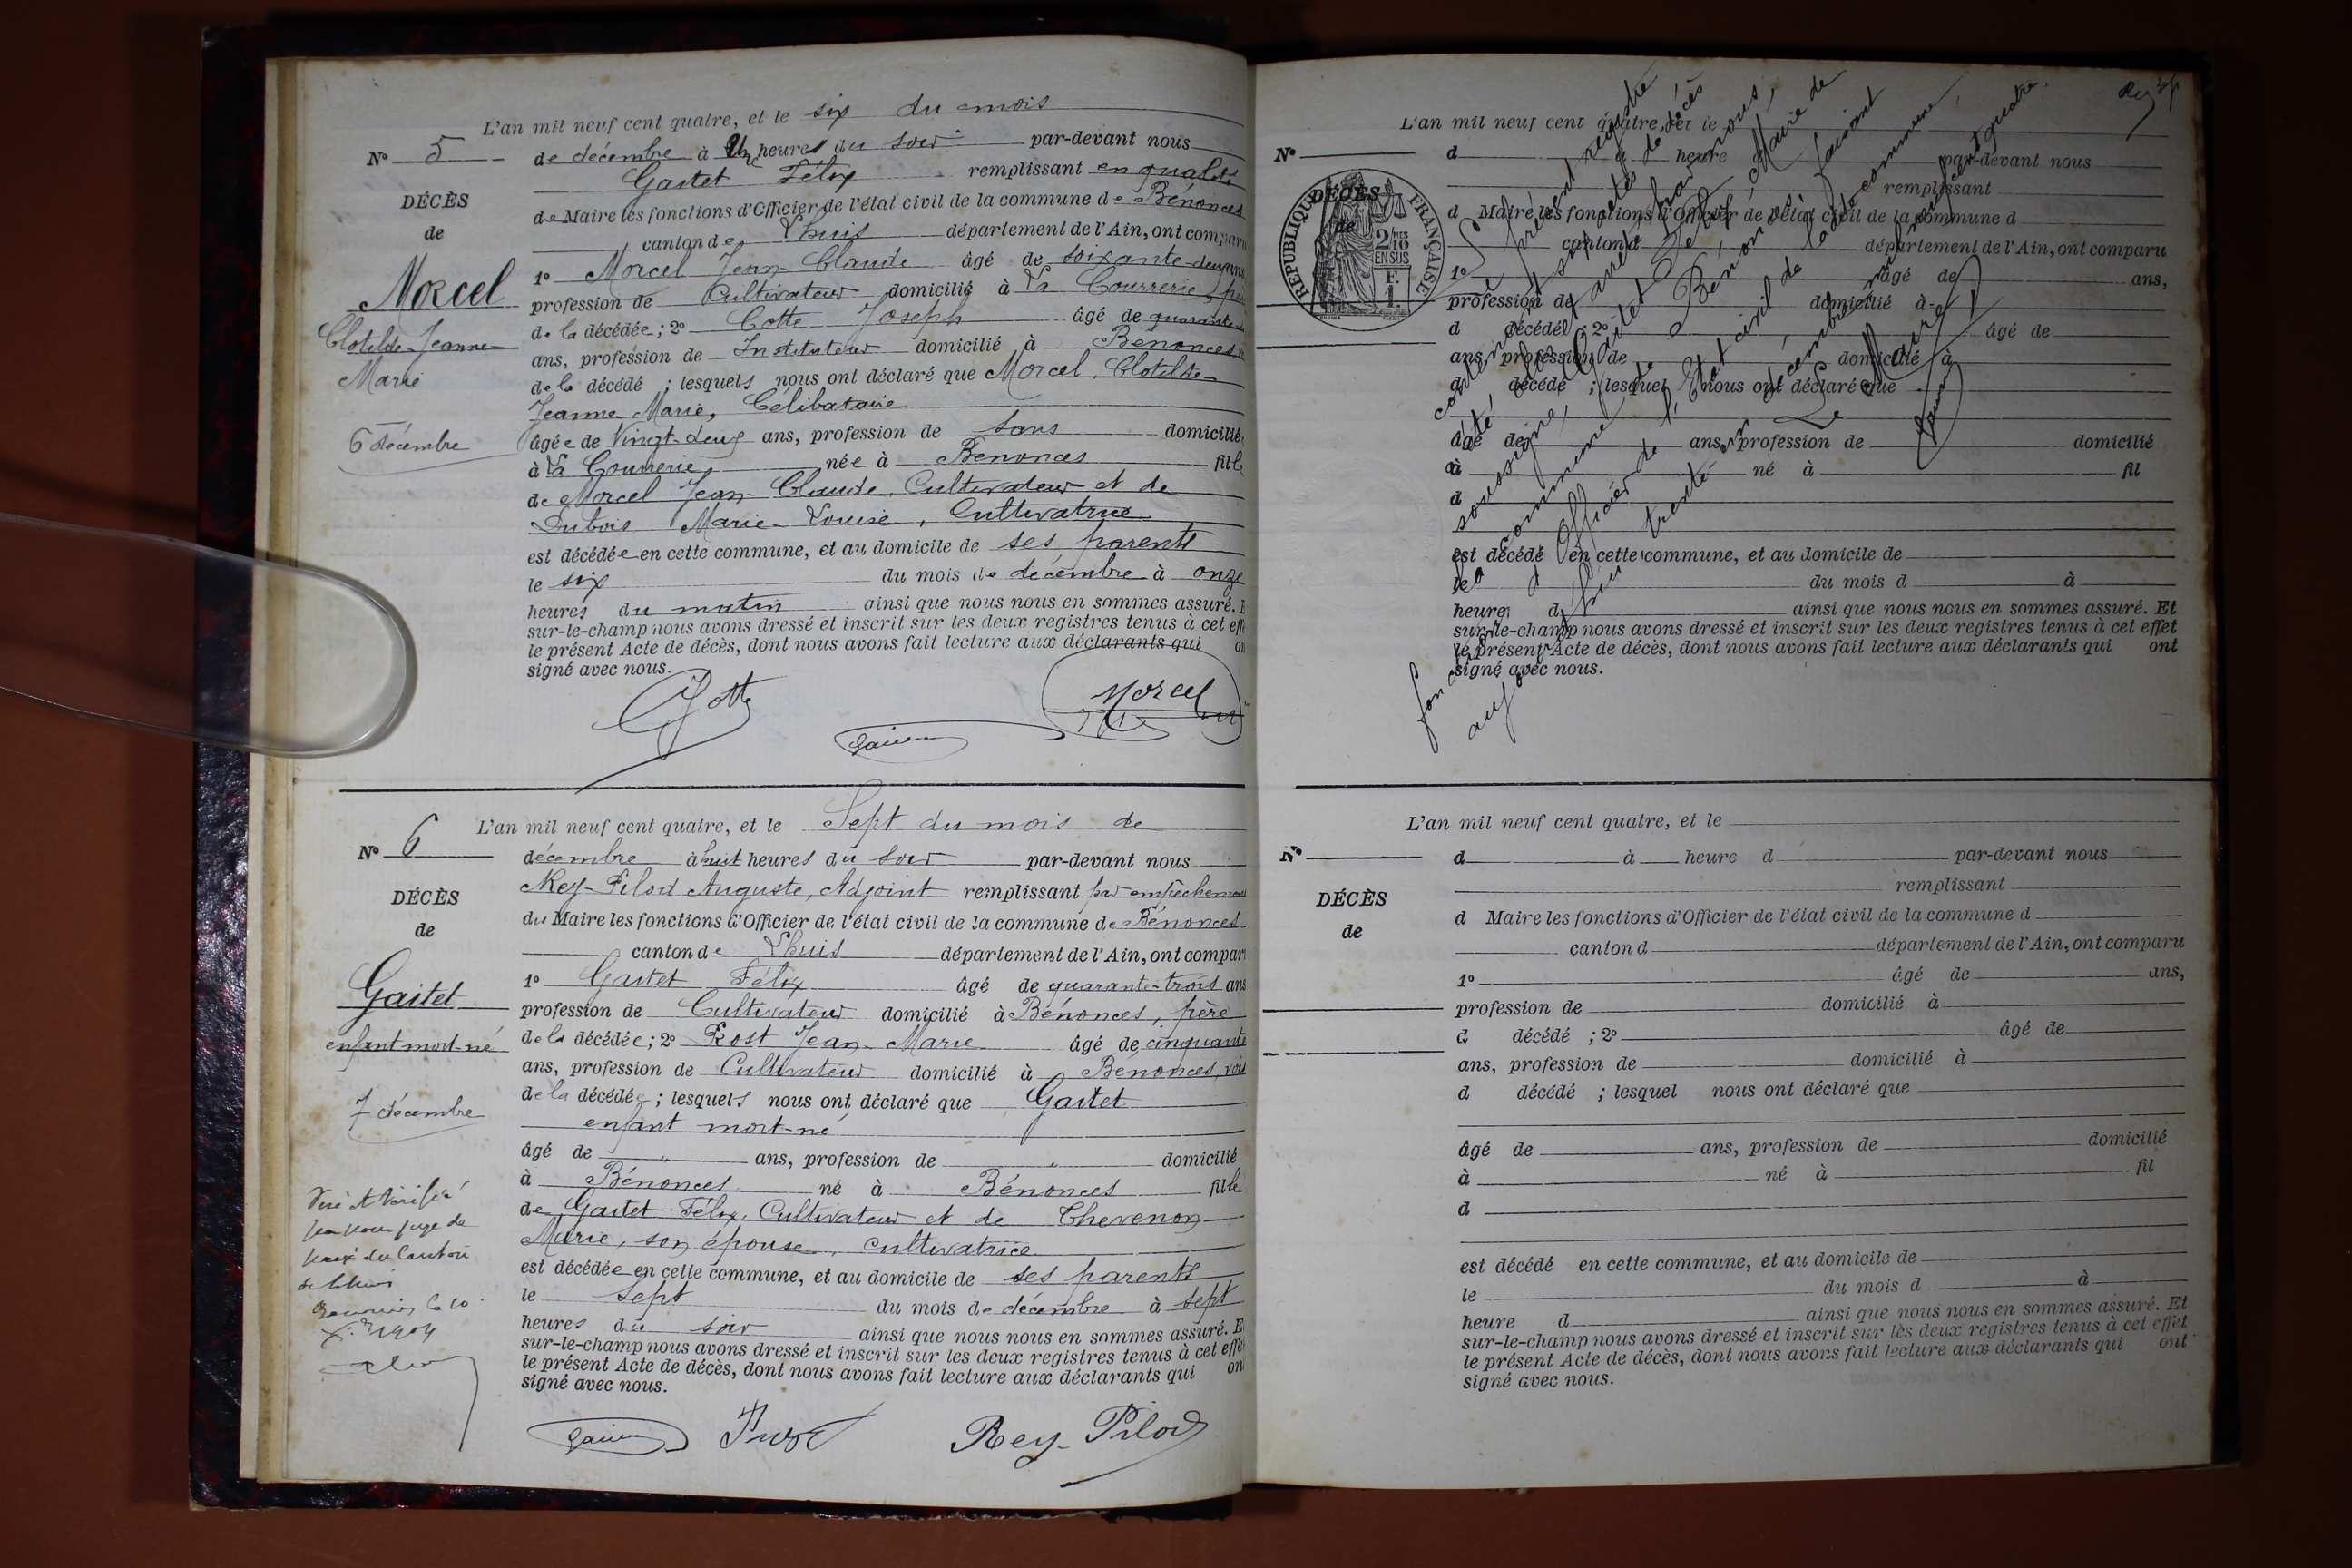 L'an mil neuf cent quatre, et le six du mois
N° 5 de décembre à Un heures du soir par-devant nous
Gaitet Félix remplissant en qualité
de Maire les fonctions d'Officier de l'état civil de la commune de Bénonces
canton de Lhuis département de l'Ain, ont comparu
DÉCÈS
de
Morcel
Clotilde Jeanne
Marie
6 décembre
1° Morcel Jean Claude âgé de soixante-deux ans
profession de Cultivateur domicilié à La Courrerie, père
de la décédée ; 2° Cotte Joseph âgé de quarante
ans, profession de Instituteur domicilié à Bénonces
de la décédé ; lesquels nous ont déclaré que Morcel Clotilde
Jeanne Marie, Célibataire
âgée de Vingt-deux ans, profession de sans domicilié
à La Courrerie née à Bénonces fille
de Morcel Jean-Claude, Cultivateur et de
Dubois Marie-Louise, Cultivatrice
est décédée en cette commune, et au domicile de ses parents
le six du mois de décembre à onze
heures du matin ainsi que nous nous en sommes assuré. E
sur-le-champ nous avons dressé et inscrit sur les deux registres tenus à cet effe
le présent Acte de décès, dont nous avons fait lecture aux déclarants qui on
signé avec nous.
Cotte
Morcel
L'an mil neuf cent quatre, et le Sept du mois de
N° 6 décembre à huit heures du soir par-devant nous
Rey-Pilod Auguste, Adjoint remplissant par empêchement
du Maire les fonctions d'Officier de l'état civil de la commune de Bénonces
canton de Lhuis département de l'Ain, ont compar
DÉCÈS
de
Gaitet
enfant mort-né
7 décembre
1° Gaitet Félix âgé de quarante-trois ans
profession de Cultivateur domicilié à Bénonces, père
de la décédée ; 2° Prost Jean-Marie âgé de cinquante
ans, profession de Cultivateur domicilié à Bénonces,
de la décédée ; lesquels nous ont déclaré que Gaitet
enfant mort-né
âgé de " ans, profession de " domicilié
à Bénonces né à Bénonces fille
de Gaitet Félix, Cultivateur et de Thevenon
Marie, son épouse, cultivatrice
est décédée en cette commune, et au domicile de ses parents
le sept du mois de décembre à sept
heures du soir ainsi que nous nous en sommes assuré. E
sur-le-champ nous avons dressé et inscrit sur les deux registres tenus à cet effe
le présent Acte de décès, dont nous avons fait lecture aux déclarants qui on
signé avec nous.
Vérifié
par nous juge de
paix du Canton
de Lhuis
Bénonces le 10
Xbre 1904
Rey-Pilod
L'an mil neuf cent quatre, et le
N° d à heure d par-devant nous
remplissant
d Maire les fonctions d'Officier de l'état civil de la commune d
canton d département de l'Ain, ont comparu
DÉCÈS
de
RÉPUBLIQUE FRANÇAISE
2/10 EN SUS
F. 1.
1° âgé de ans,
profession de domicilié à
d décédé ; 2° âgé de
ans, profession de domicilié à
d décédé ; lesquel nous ont déclaré que
âgé de ans, profession de domicilié
à né à fil
d
est décédé en cette commune, et au domicile de
le du mois d à
heure d ainsi que nous nous en sommes assuré. Et
sur-le-champ nous avons dressé et inscrit sur les deux registres tenus à cet effet
le présent Acte de décès, dont nous avons fait lecture aux déclarants qui ont
signé avec nous.
Le présent registre
contenant six actes de décès
été clos et arrêté par nous,
soussigné, Gaitet Félix, Maire de
la commune de Bénonces, faisant
fonctions d'Officier de l'Etat civil de ladite commune,
aujourd'hui trente un décembre mil neuf cent quatre.
Le Maire
L'an mil neuf cent quatre, et le
N° d à heure d par-devant nous
remplissant
d Maire les fonctions d'Officier de l'état civil de la commune d
canton d département de l'Ain, ont comparu
DÉCÈS
de
1° âgé de ans,
profession de domicilié à
d décédé ; 2° âgé de
ans, profession de domicilié à
d décédé ; lesquel nous ont déclaré que
âgé de ans, profession de domicilié
à né à fil
d
est décédé en cette commune, et au domicile de
le du mois d à
heure d ainsi que nous nous en sommes assuré. Et
sur-le-champ nous avons dressé et inscrit sur les deux registres tenus à cet effet
le présent Acte de décès, dont nous avons fait lecture aux déclarants qui ont
signé avec nous.